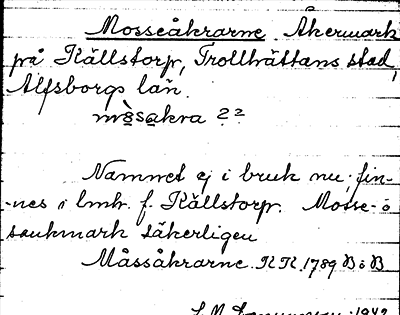 Mosseåkrarne. Åkermark
på Källstorp, Trollhättans stad,
Älfsborgs län.
mòsakra 22
Namnet ej i bruk nu, fin-
-nes i lmh. f. Källstorp. Mosse- =
sankmark säkerligen
Måssåkrarne. KK. 1789 B ö B
1942